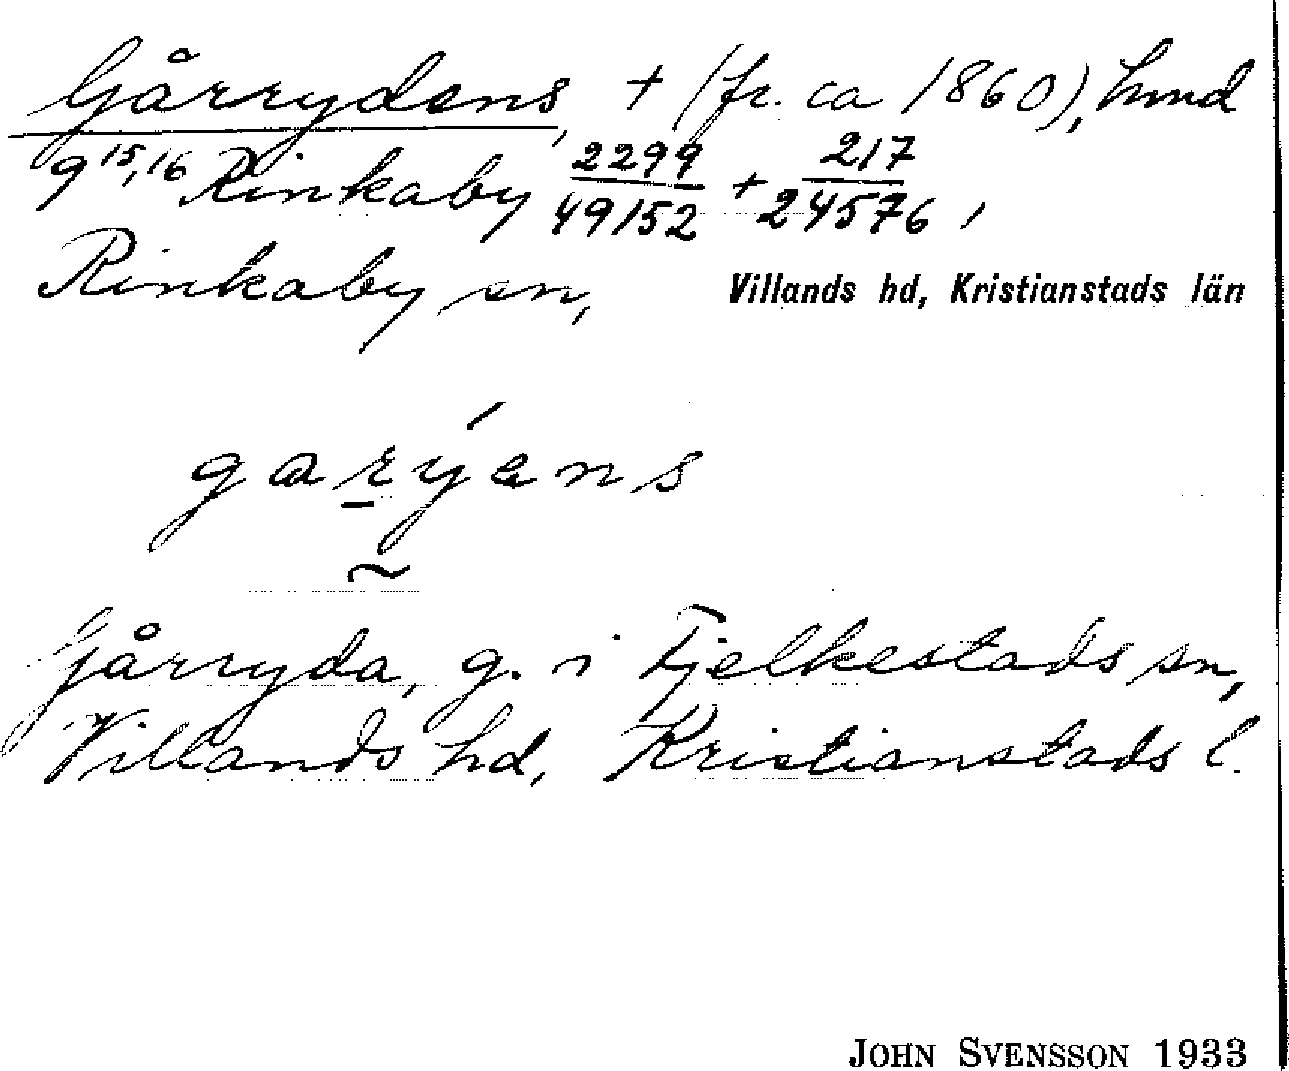 Gårrydens, + (fr. ca 1860), hmd
9 15,16 Rinkaby 2299/49152 + 217/24576,
Rinkaby sn, Villands hd, Kristianstads län
garýens
~
Gårryda, g. i Fjelkestads sn,
Villands hd, Kristianstads l.
JOHN SVENSSON 1933